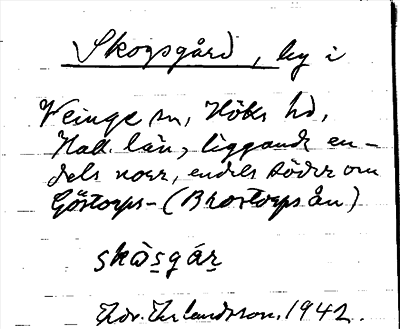 Skogsgård, by i
Veinge sn, Höks hd,
Hall. län, liggande en-
dels norr, endels söder om
Göstorps- (Brostorpsån)
skàsgár
Edv. Erlandsson, 1942.